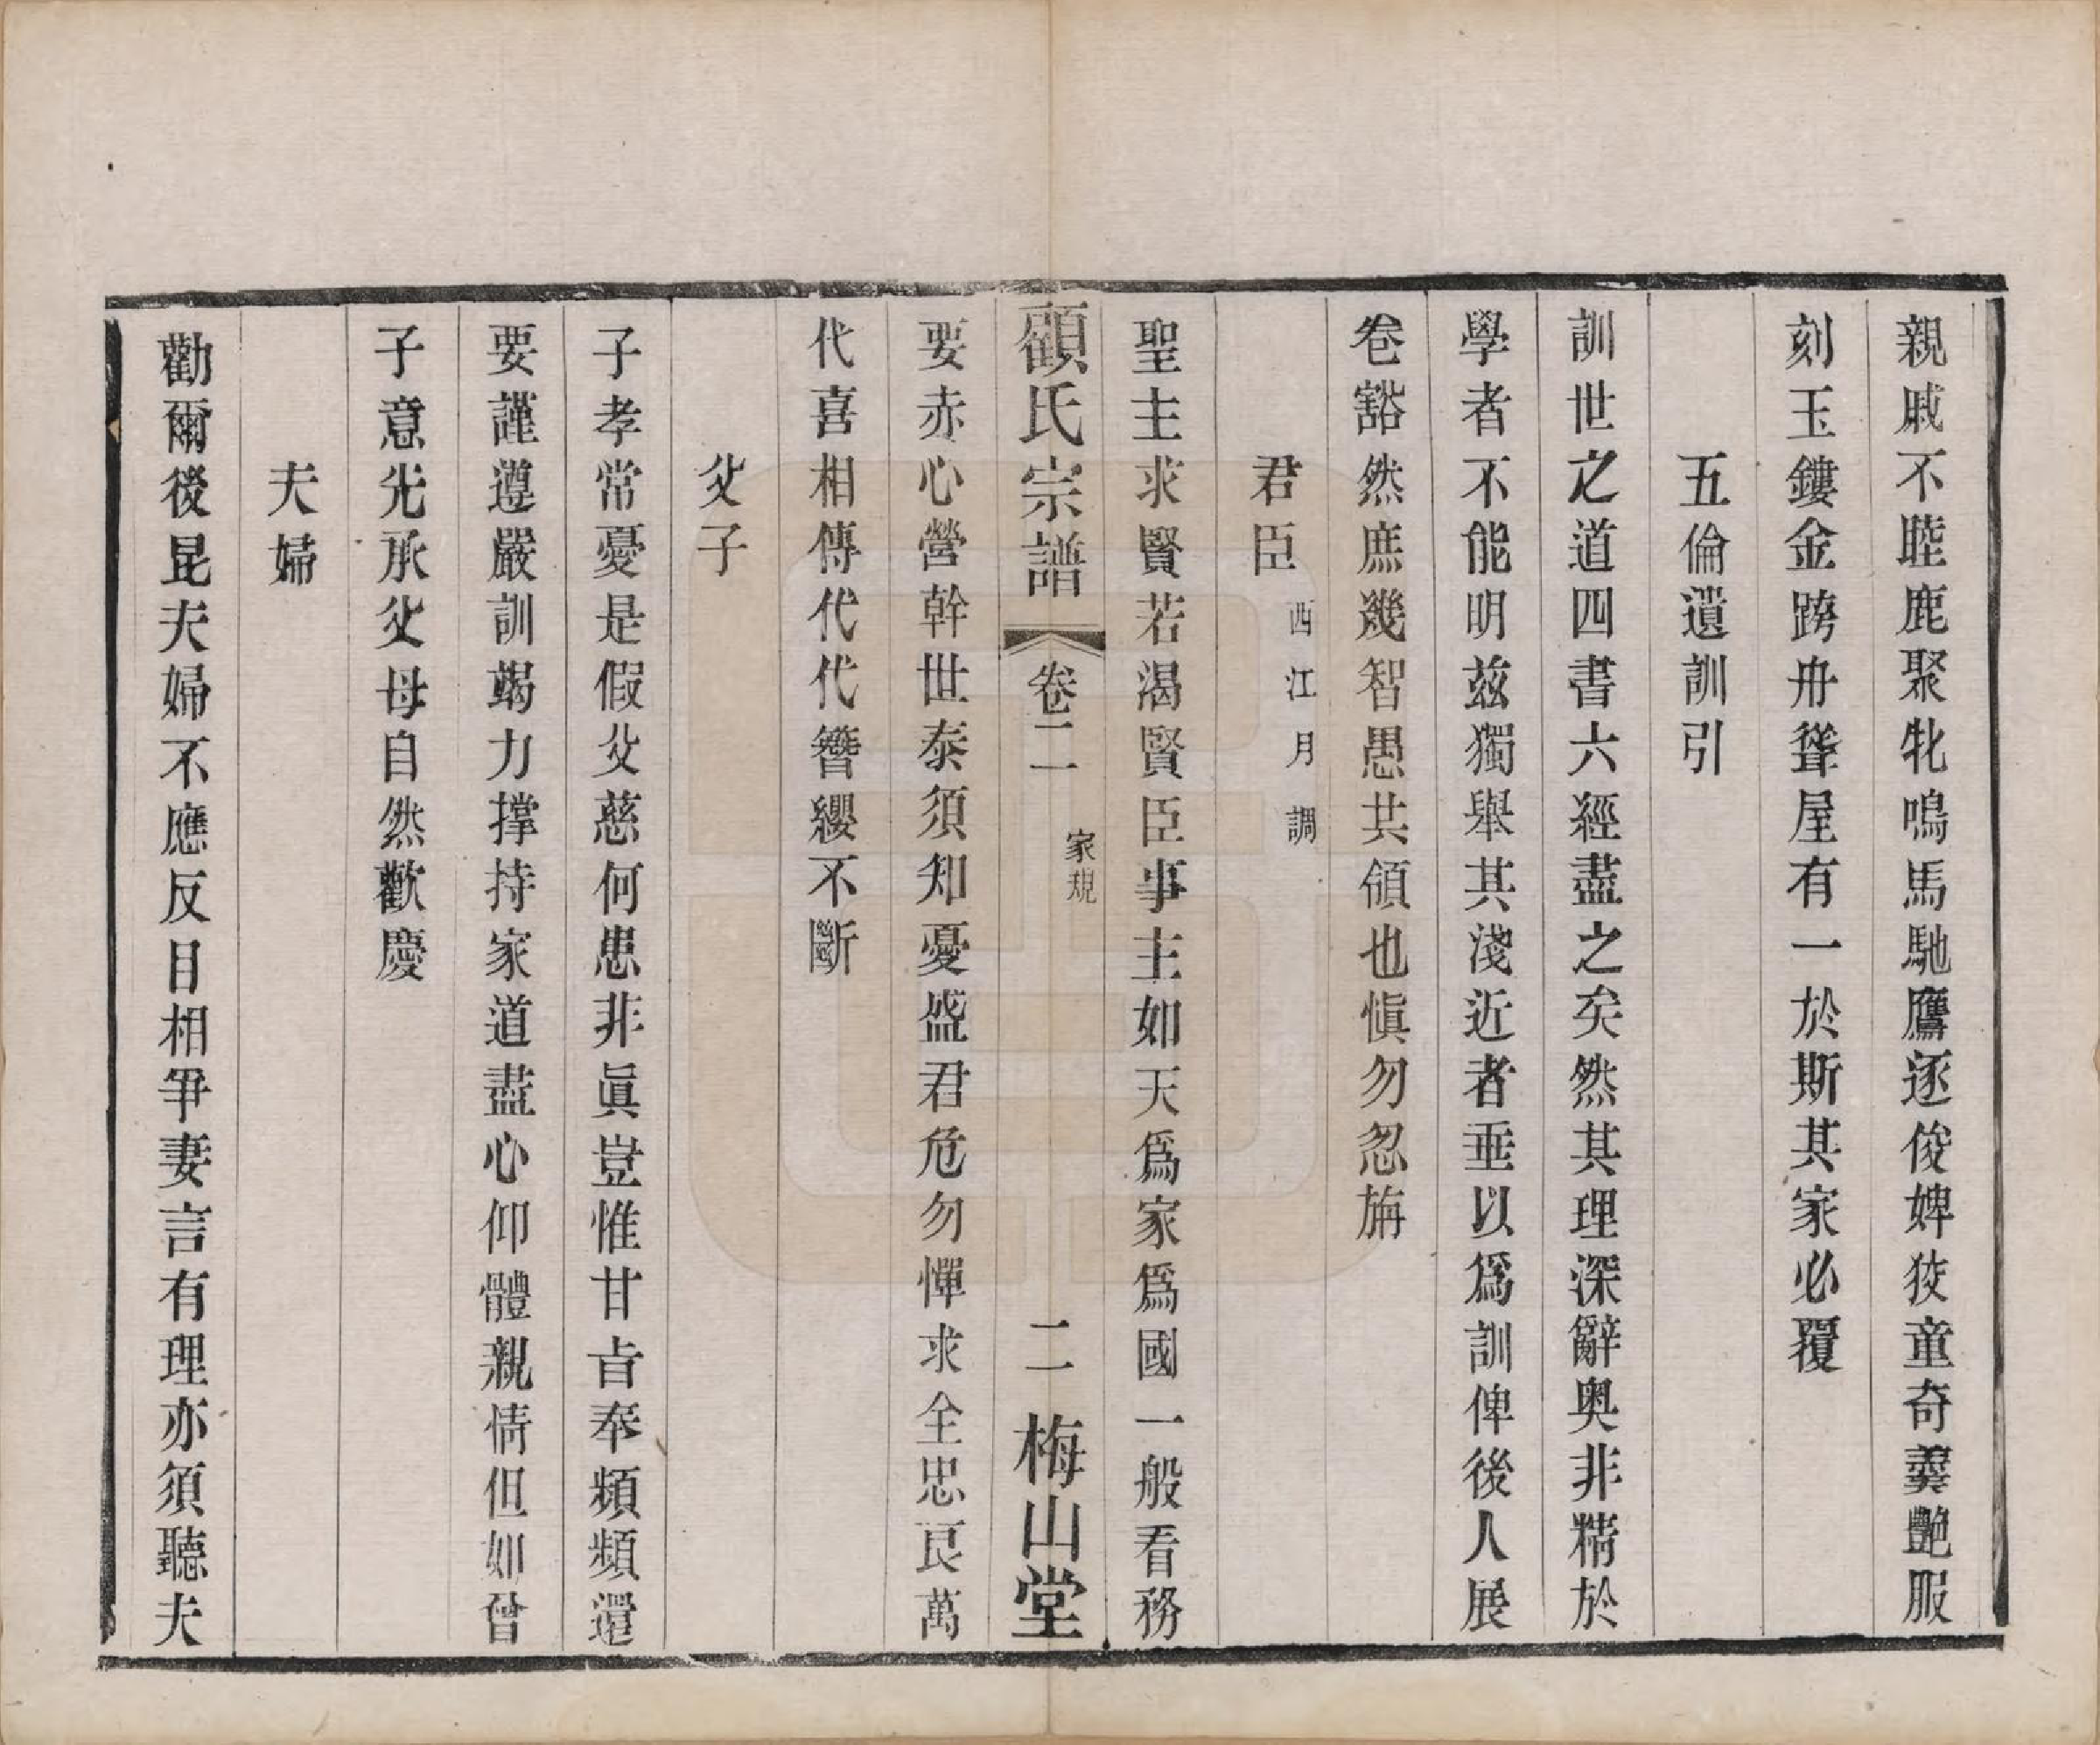 親戚不睦鹿聚牝鳴馬馳鷹逐俊婢狡童奇羹艷服
刻玉鏤金跨舟聳屋有一於斯其家必覆
五倫遺訓引
訓世之道四書六經盡之矣然其理深辭奥非精於
學者不能明兹獨舉其淺近者垂以爲訓俾後人展
卷豁然庶幾智愚共領也愼勿忽旃
君臣 西江月調
聖主求賢若渴賢臣事主如天爲家爲國一般看務
顧氏宗譜 卷二 家規 二 梅山堂
要赤心營幹世泰須知憂盛君危勿憚求全忠良萬
代喜相傳代代簪纓不斷
父子
子孝常憂是假父慈何患非眞豈惟甘旨奉頻頻還
要謹遵嚴訓竭力撑持家道盡心仰體親情但如曾
子意先承父母自然歡慶
夫婦
勸爾後昆夫婦不應反目相爭妻言有理亦須聽夫